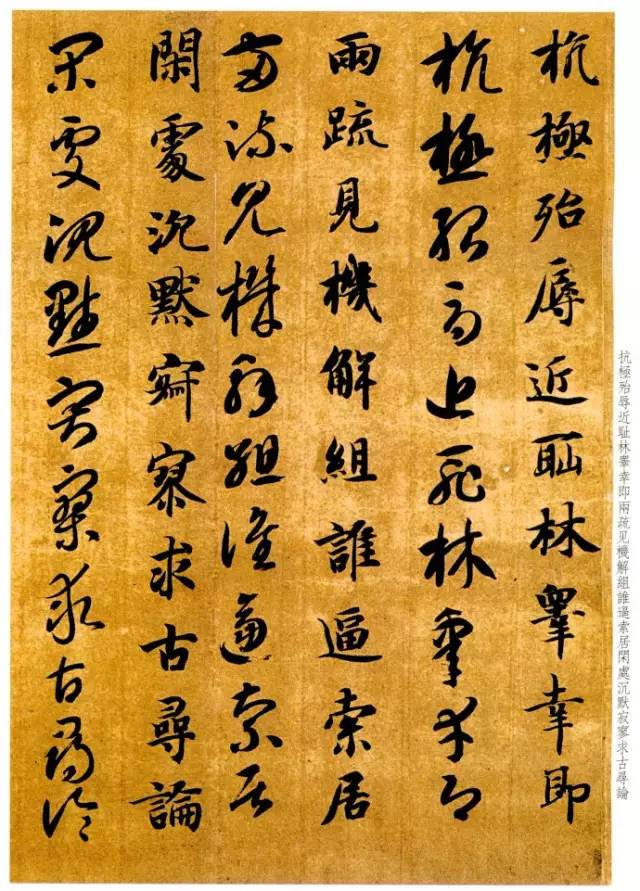 杭極殆辱近恥林睾幸即
杭極殆辱近恥林睾幸即
兩疏見機解組誰逼索居
兩疏見機解組誰逼索居
閑處沉默寂寥求古尋論
閑處沉默寂寥求古尋論
抗極殆辱近耻林睾幸即兩疏见機解組誰逼索居閑處沉默寂寥求古尋論